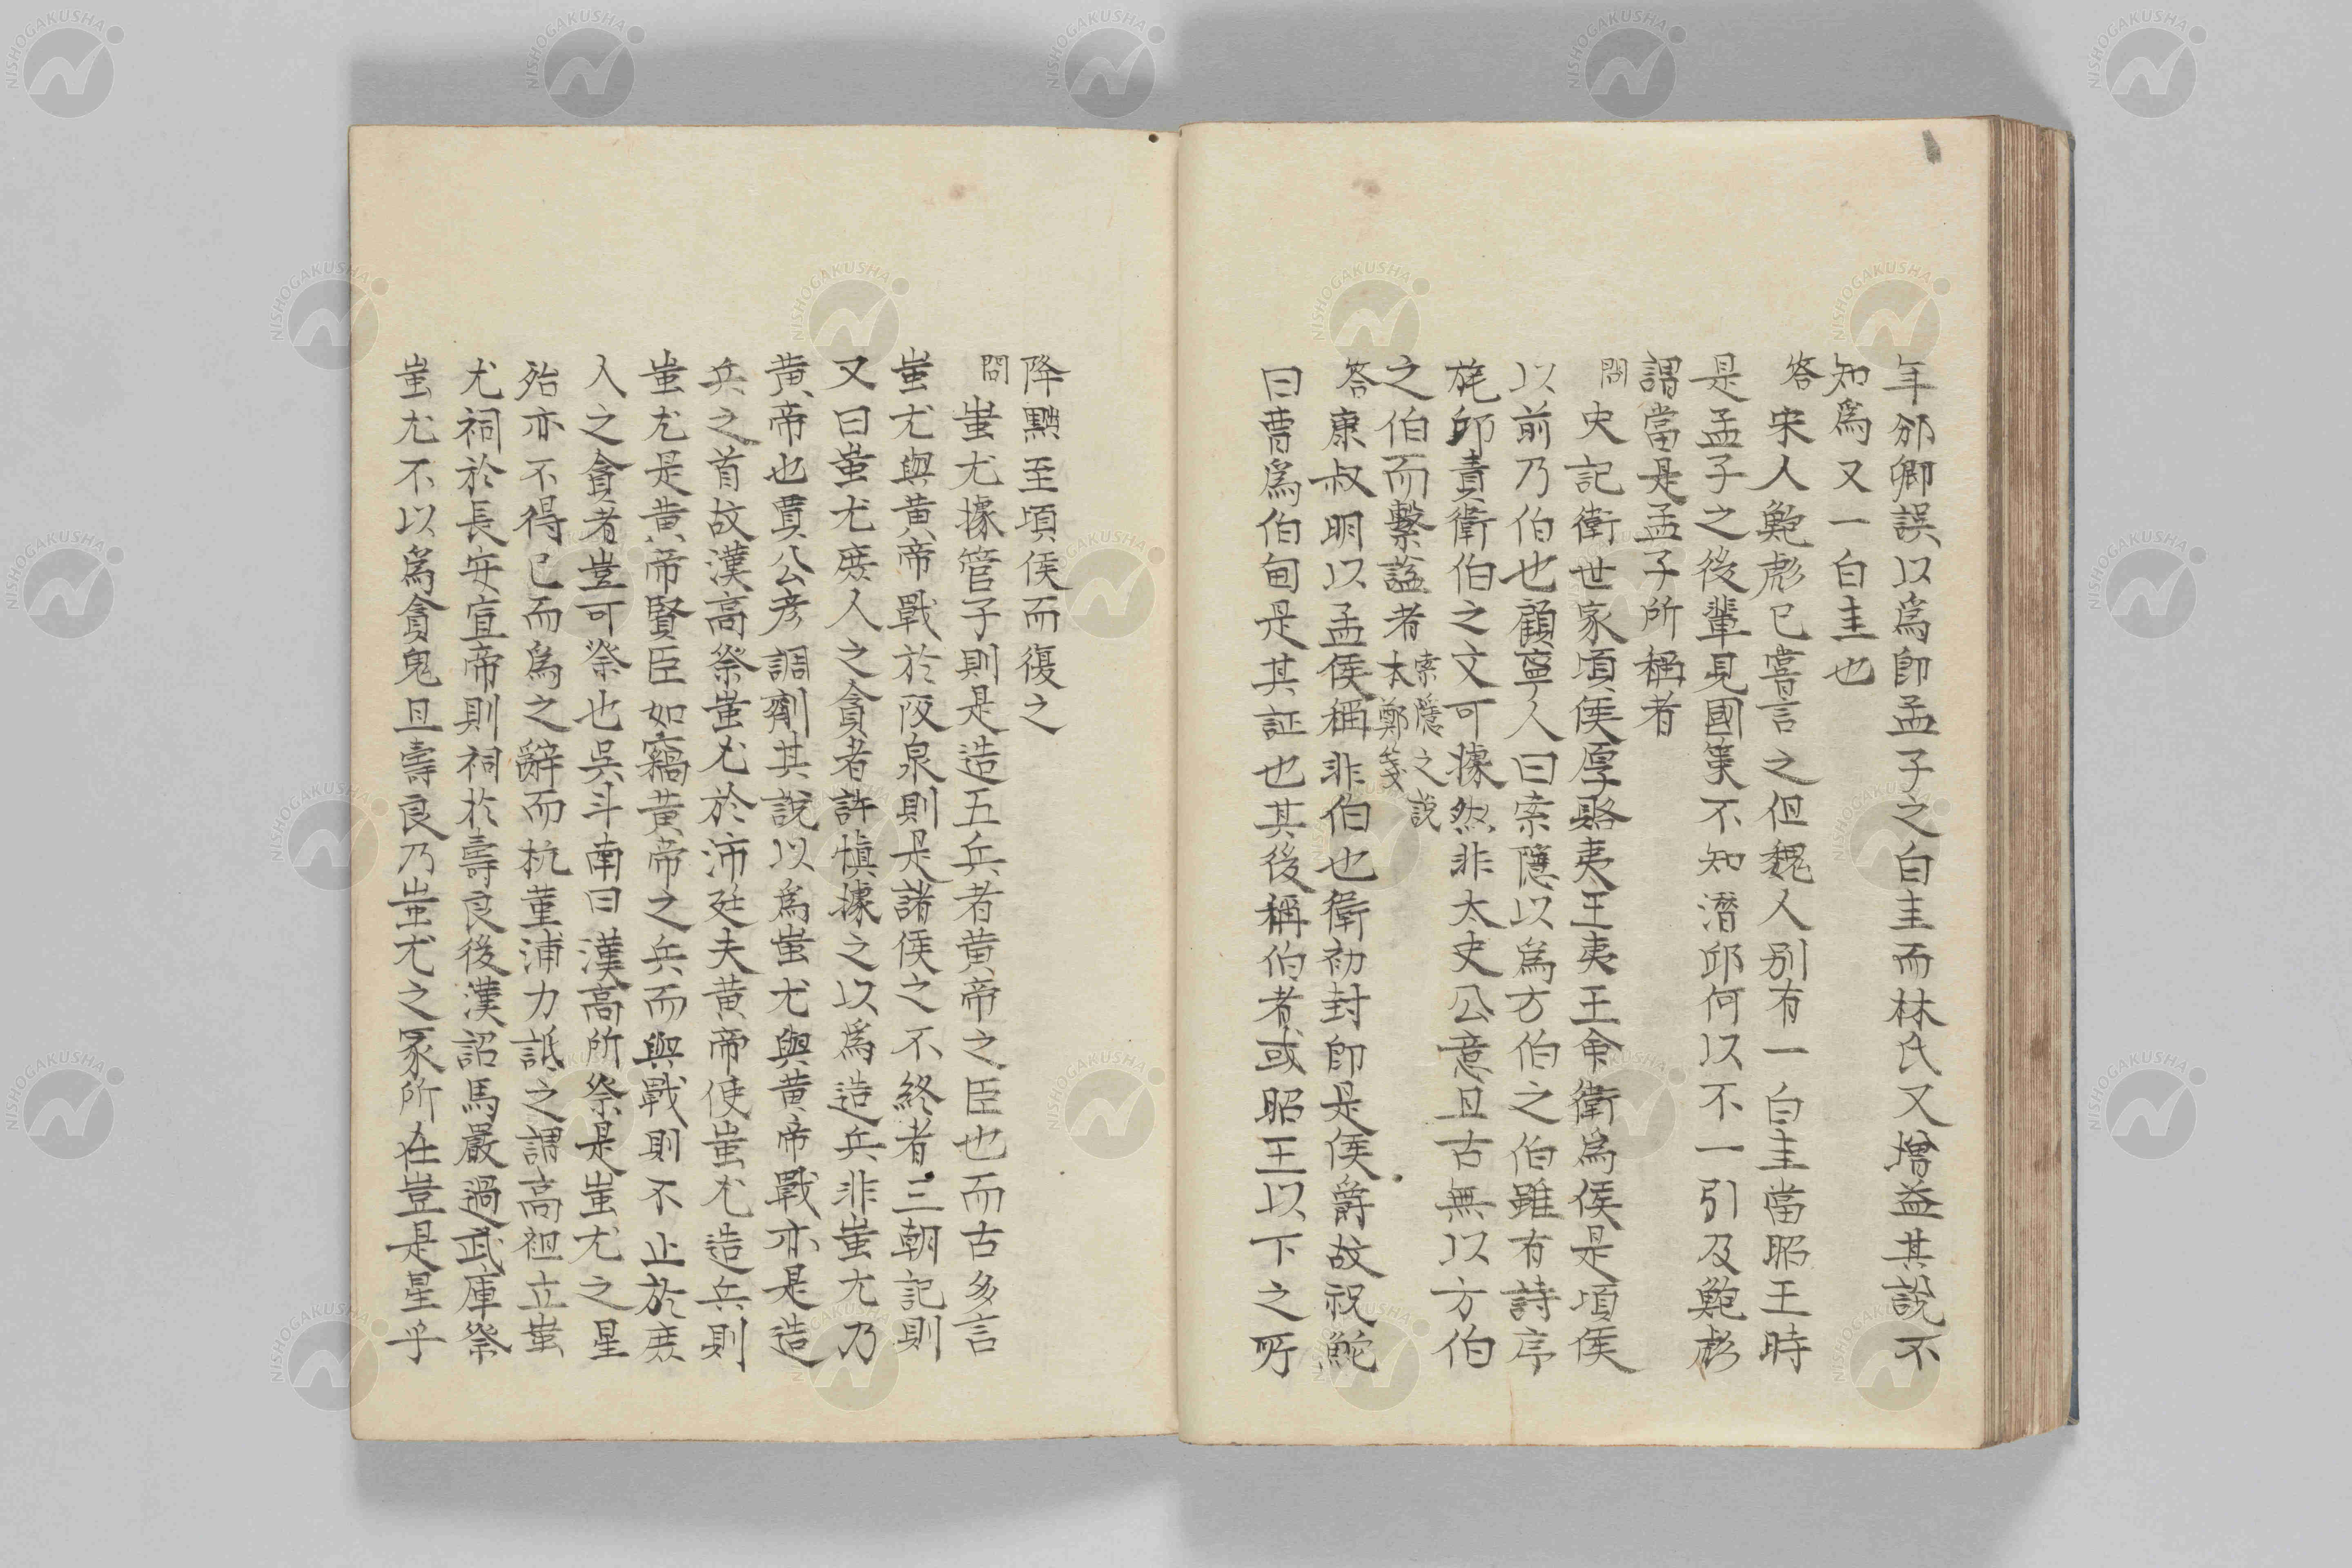 年邠卿誤以爲卽孟子之白圭而林氏又增益其說不
知爲又一白圭也
答宋人鮑彪已嘗言之但魏人別有一白圭當昭王時
是孟子之後輩見國策不知潛邱何以不一引及鮑彪
謂當是孟子所稱者
問史記衛世家頃侯厚賂夷王夷王命衛爲侯是頃侯
以前乃伯也顧寧人曰索隱以爲方伯之伯雖有詩序
旄邱責衛伯之文可據然非太史公意且古無以方伯
之伯而繫諡者索隱之說本鄭箋
答康叔明以孟侯稱非伯也衛初封卽是侯爵故祝鮀
曰曹爲伯甸是其証也其後稱伯者或昭王以下之所
降黜至頃侯而復之
問蚩尤據管子則是造五兵者黃帝之臣也而古多言
蚩尤與黃帝戰於阪泉則是諸侯之不終者三朝記則
又曰蚩尤庶人之貪者許慎據之以爲造兵非蚩尤乃
黃帝也賈公彥調劑其說以爲蚩尤與黃帝戰亦是造
兵之首故漢高祭蚩尤於沛廷夫黃帝使蚩尤造兵則
蚩尤是黃帝賢臣如竊黃帝之兵而與戰則不止於庶
人之貪者豈可祭也吳斗南曰漢高所祭是蚩尤之星
殆亦不得已而爲之辭而杭菫浦力詆之謂高祖立蚩
尤祠於長安宣帝則祠於壽良後漢詔馬嚴過武庫祭
蚩尤不以爲貪鬼且壽良乃蚩尤之冢所在豈是星乎
NISHOGAKUSHA